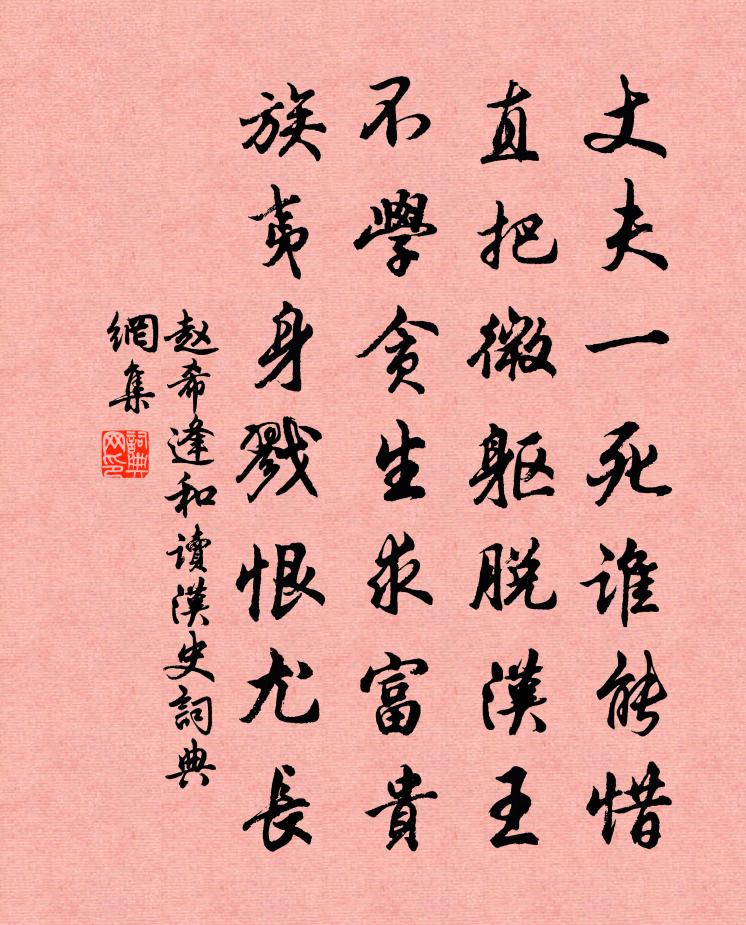 丈夫一死谁能惜
直把微躯脱漢王
不學贪生求富貴
族夷身戮恨尤長
赵希逢和读漢史詞典
網集
詞典
网印